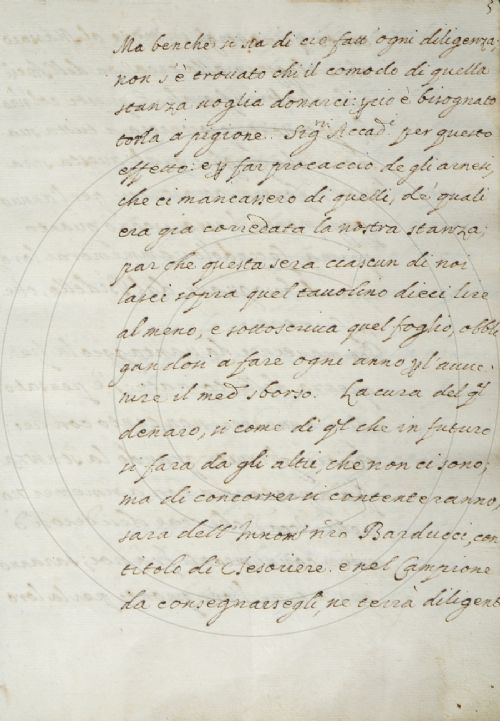 5
Ma benche si sia di cio fatt' ogni diligenza,
non s'è trovato chi il comodo di quella
stanza voglia donarci: pciò è bisognato
torla à pigione. Sig.ri Accad.ci per questo
effetto: e p far procaccio de gli arnesi,
che ci mancanero di quelli, de' quali
era gia corredata la nostra stanza;
par che questa sera ciascun di noi
lasci sopra quel tavolino dieci lire
al meno, e sottoscriva quel foglio, obbli
gandosi a fare ogni anno pl avve-
nire il med.o sborso. La cura del ql
denaro, si come di ql che in futuro
si fara da gli altri, che non ci sono;
ma di concorrervi contenteranno,
sara dell' Innom. nro Barducci, con
titolo di Tesoriere. e nel Campione
da consegnarsegli, ne terrà diligent